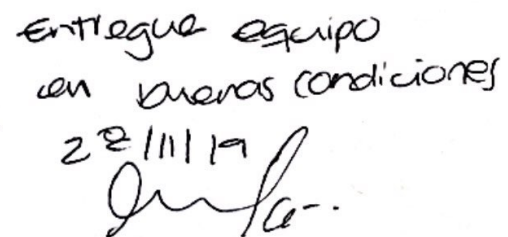 Entregue equipo
en buenas condiciones
22/11/19